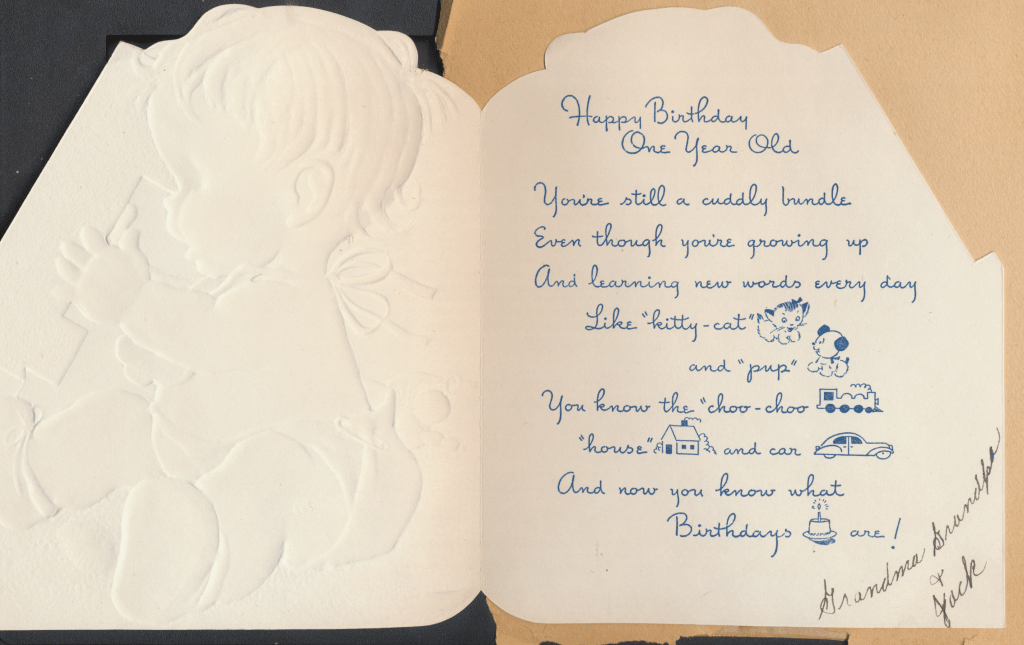 Happy Birthday
One Year Old
You're still a cuddly bundle
Even though you're growing up
And learning new words every day
Like "kitty-cat"
and "pup"
You know the "choo-choo
"house" and car
And now you know what
Birthdays are!
Grandma Grandpa
& Jack